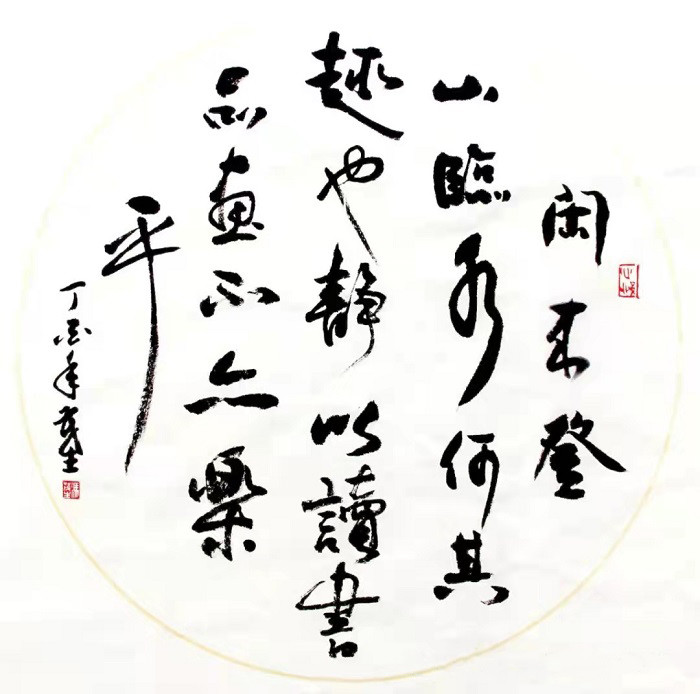 閑来登
山臨水何其
趣也静以讀書
品画不亦樂
乎
丁酉年